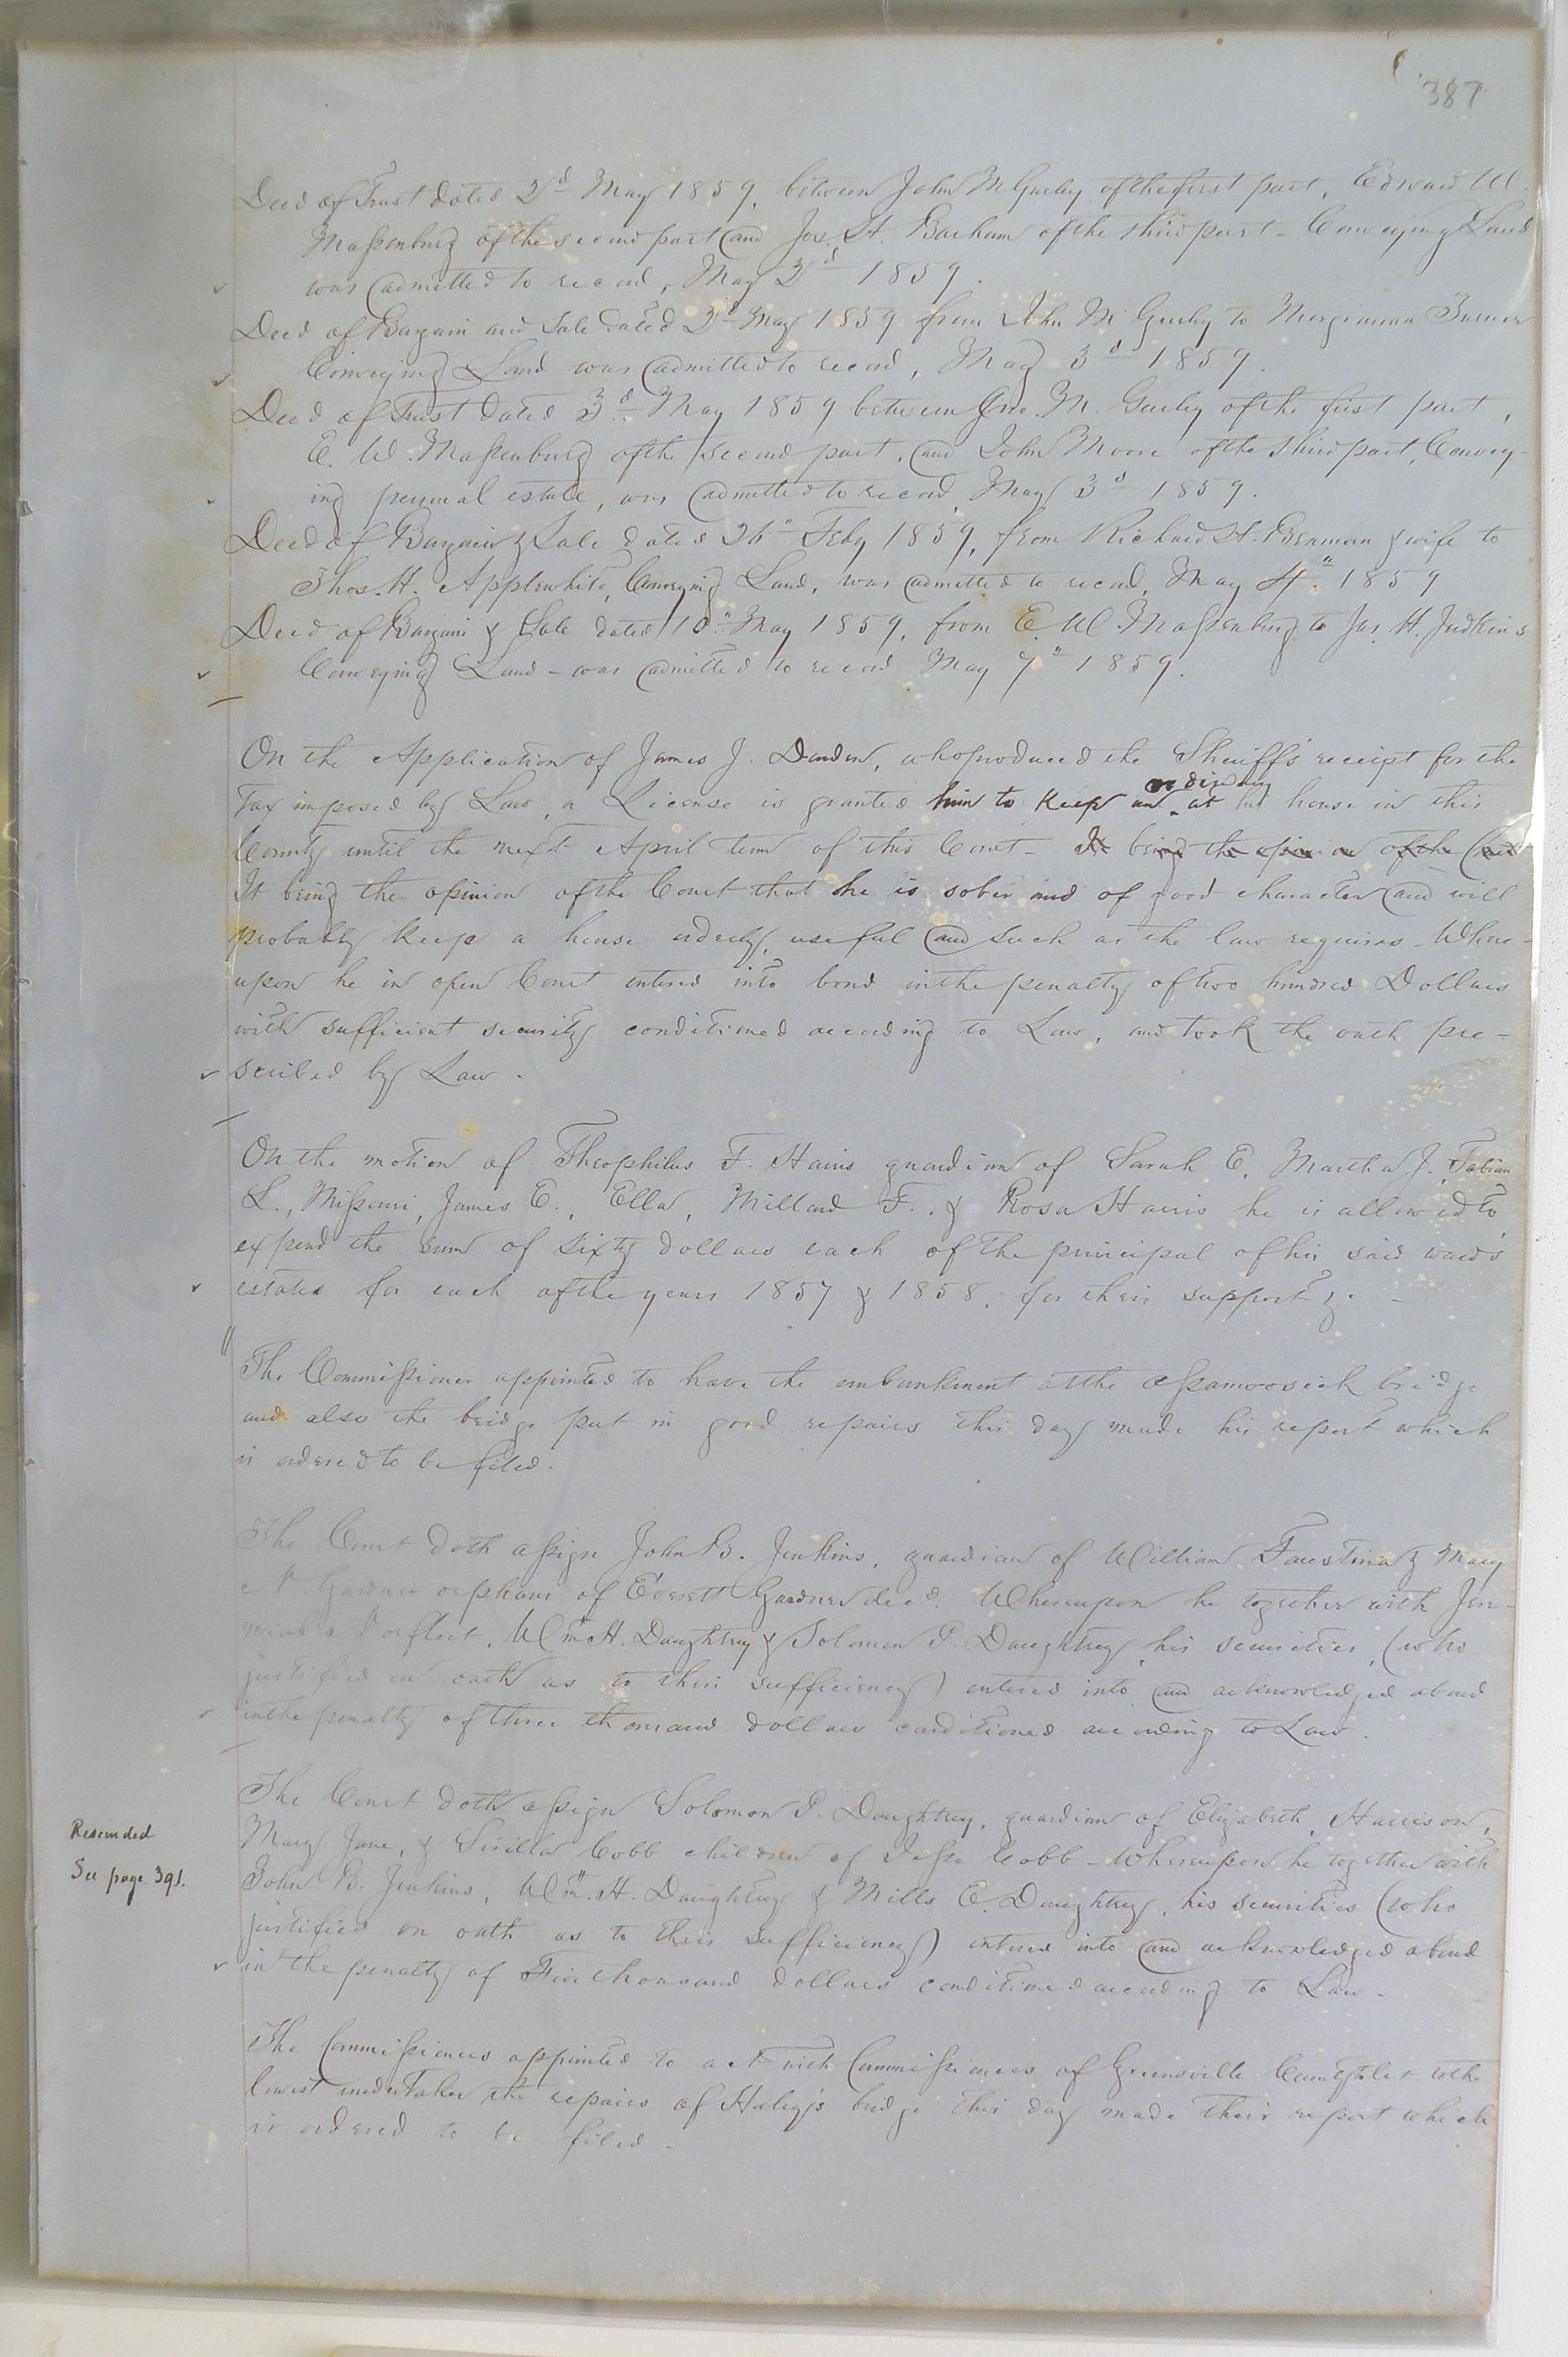 387
Deed of Trust dated 2d May 1859, between John M Gurley of the first part, Edward W.
Massenburg of the second part and Jos. H. Barham of the third part - Conveying Land
was admitted to record, May 2d 1859.
Deed of Bargain and Sale dated 2d May 1859 from John M Gurley to Turner
Conveying Land was admitted to record, May 3d 1859.
Deed of Trust dated 3d May 1859 between Jno. M. Gurley of the first part,
E. W. Massenburg of the second part, and John Moore of the third part, Convey-
ing personal estate, was admitted to record, May 3d 1859.
Deed of Bargain & Sale dated 26" Feby 1859, from Richard H. Beaman & wife to
Thos. H. Applewhite, Conveying Land, was admitted to record, May 4" 1859
Deed of Bargain & Sale dated 10" May 1859, from E. W. Massenburg to Jas. H. Judkins
Conveying Land - was admitted to record May 7" 1859.
On the Application of James J. Darden, who produced the Sheriff's receipt for the
Tax imposed by Law, a License is granted him to keep an ordinary at his house in this
County until the next April term of this Court - It being the opinion of the Court
It being the opinion of the Court that he is sober and of good character and will
probably keep a house orderly, useful and such as the law requires. Where-
upon he in open Court entered into bond in the penalty of two hundred Dollars
with sufficient security conditioned according to Law, and took the oath pre-
scribed by Law.
On the motion of Theophilus F. Harris guardian of Sarah E, Martha J., Fabian
L., Missouri, James E., Ella, Millard F., & Rosa Harris he is allowed to
expend the sum of sixty dollars each of the principal of his said ward's
estates for each of the years 1857 & 1858, for their support &c. -
The Commissioner appointed to have the embankment at the Assamoosick bridge
and also the bridge put in good repairs this day made his report which
is ordered to be filed.
The Court doth assign John B. Jenkins, guardian of William Faustina & Mary
A Gardner orphans of Everett Gardner decd. Whereupon he together with Jere-
miah Norfleet, Wm H. Daughtrey & Solomon P. Daughtrey, his securities, (who
justified on oath as to their sufficiency) entered into and acknowledged a bond
in the penalty of three thousand dollars conditioned according to Law.
The Court doth assign Solomon P. Daughtrey, guardian of Elizabeth, Harrison,
Rescinded
See page 391.
Mary Jane, & Sirilla Cobb children of Jesse Cobb - Whereupon he together with
John B. Jenkins, Wm. H. Daughtrey & Mills E. Daughtrey, his securities (who
justified on oath as to their sufficiency) entered into and acknowledged a bond
in the penalty of thousand dollars conditioned according to Law.
The Commissioners appointed to act with Commissioners of Greensville County to let to the
lowest undertaker the repairs of Haley's bridge this day made their report which
is ordered to be filed -